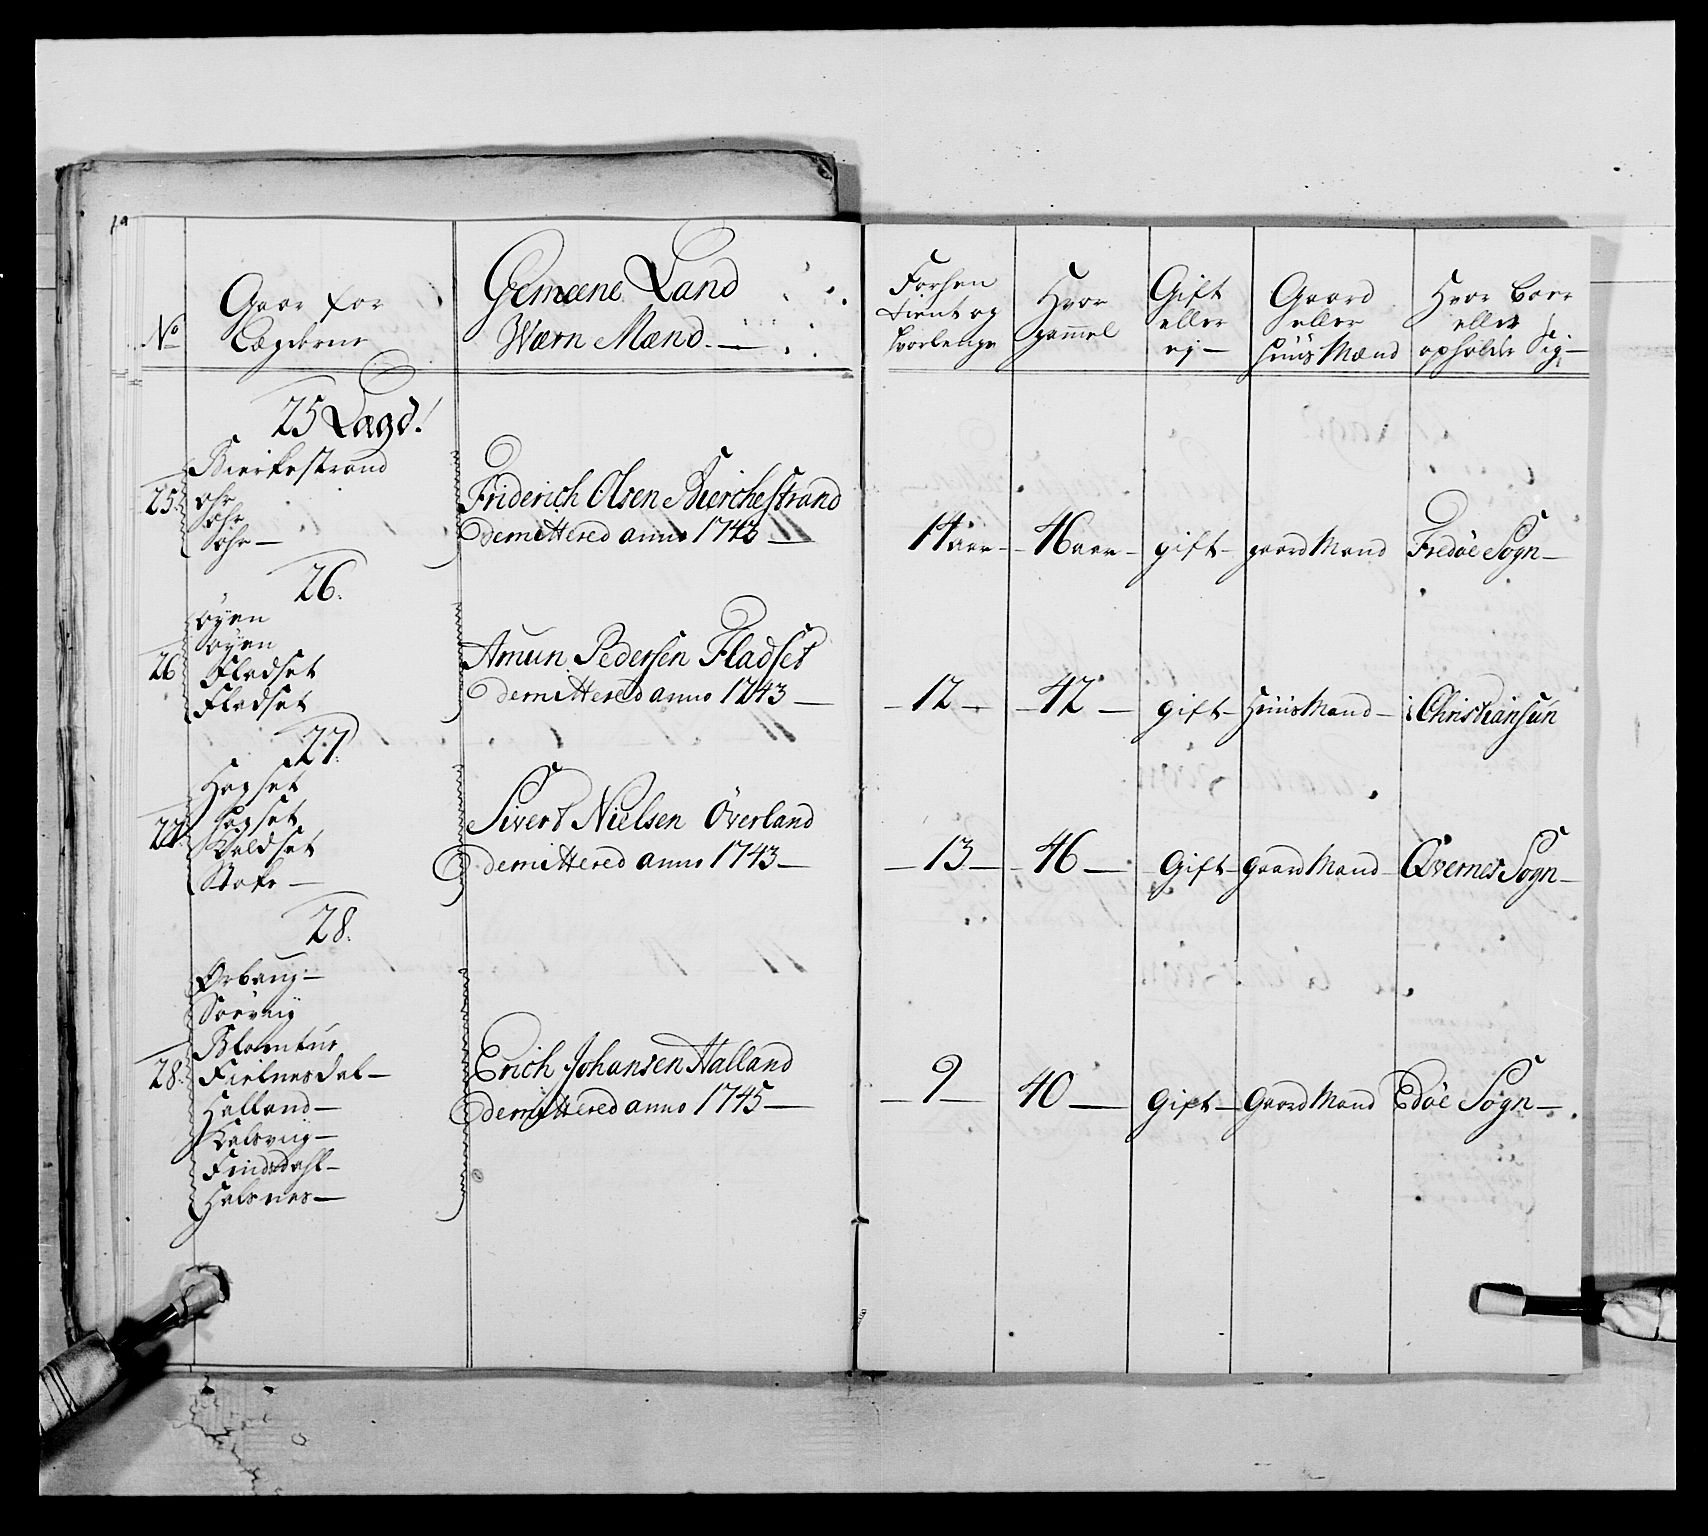 No
Gaar for
Lægderne
Gemeene Land
Wærn Mænd.
Forhen
tient og
hvorlenge
Hvor
gammel
Gift
eller
ej
Gaard
eller
Huus Mænd
Hvor boer
eller
opholder Sig
25 Lægd
Bierkestrand
25.
dhr
Frederich Olsen Bierchestrand
demittered anno 1743
14 aar
46 aar
gift
gaard Mand
Fredøe Sogn
26.
Øyen
26
Fladset
Fladset
Amun Pedersen Fladset
demittered anno 1743
12
42
gift
Huus Mand
Christiansun
27.
Hopset
27
Hopset
Sivert Nielsen Överland
demittered anno 1743
13
46
Gift
gaard Mand
Qvernes Sogn
28.
28.
Halland
Halsnes
Erich Johansen Halland
demittered anno 1745
9
40
Gift
Gaard Mand
Edöe Sogn